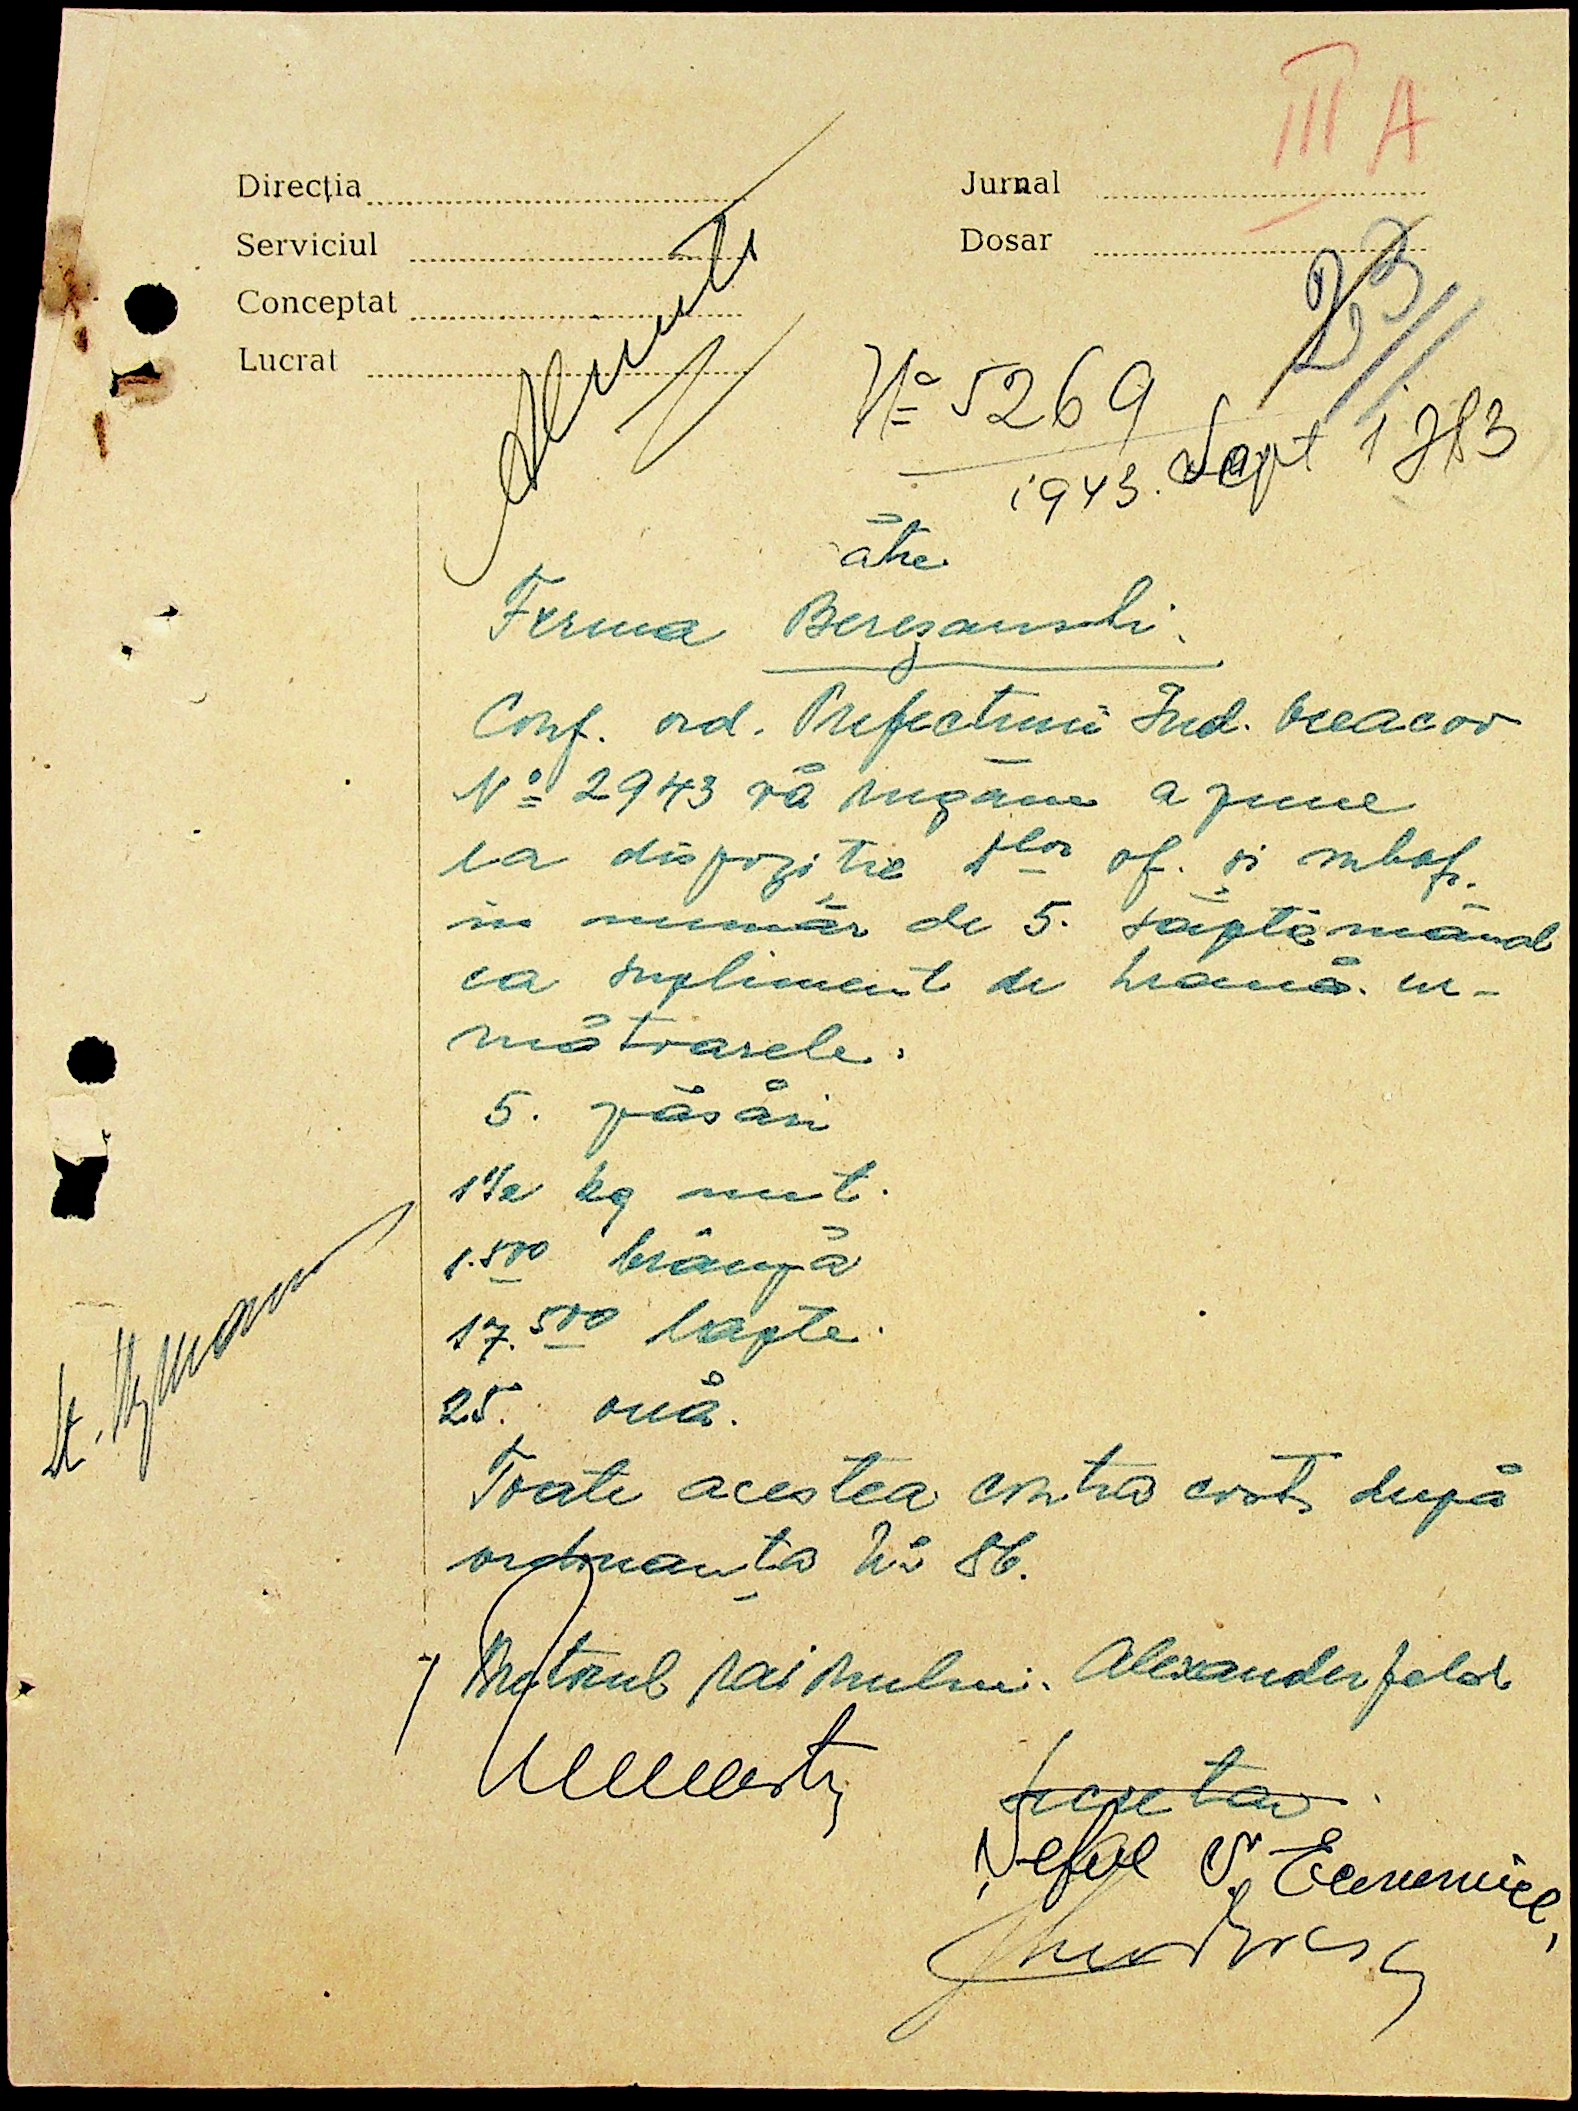 III A
Direcția
Jurnal
Serviciul
Dosar
Conceptat
Lucrat
No 5269
1943. Sept 1
către
Ferma Berezanschi.
Conf. ord. Prefecturii Jud.
No 2943 vă rugăm a pune
la dispoziție Dlor of. și subof.
în număr de 5. săptămânal
ca supliment de hrană. ur-
mătoarele.
5. păsări
1 1/2 kg unt.
1.500 brânză
17.500 lapte.
25. ouă.
Toate acestea contra cost după
ordonanța No 86.
Pretorul raionului. Alexanderfeld
Secretar.
Șeful S. Economice,